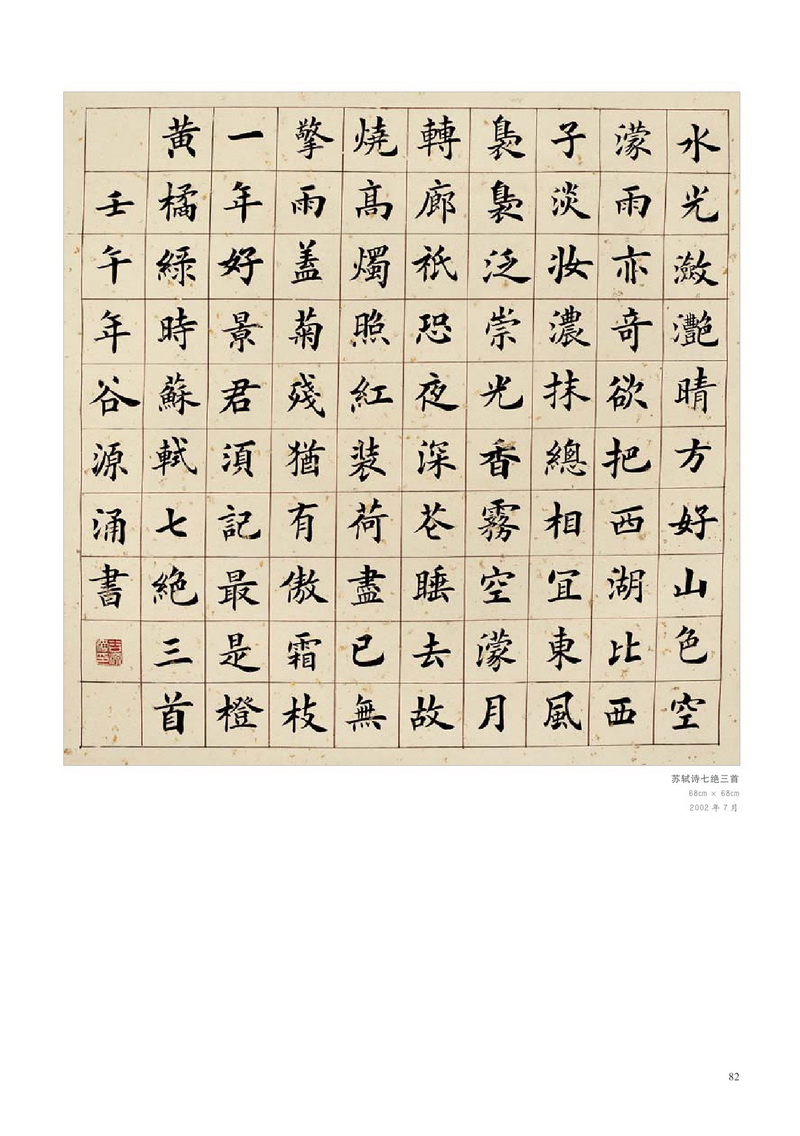 水光瀲灩晴方好山色空
濛雨亦奇欲把西湖比西
子淡妆濃抹總相冝東風
裊裊泛崇光香霧空濛月
轉廊祇恐夜深花睡去故
燒髙燭照紅装荷盡已無
擎雨蓋菊殘猶有傲霜枝
一年好景君須記最是橙
黄橘緑時蘇軾七絶三首
壬午年谷源涌書
苏轼诗七绝三首
68cm × 68cm
2002 年 7 月
82